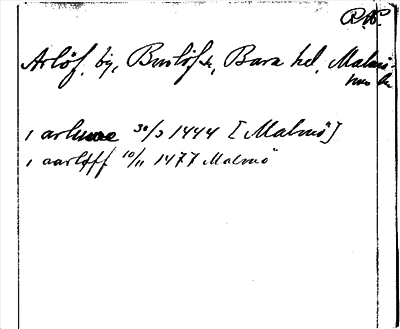 Arlöf, by, Burlöf sn, Bara hd, Malmö-
hus län
i arlunæ 30/3 1444 [Malmö]
i aarløff 10/11 1477 Malmö